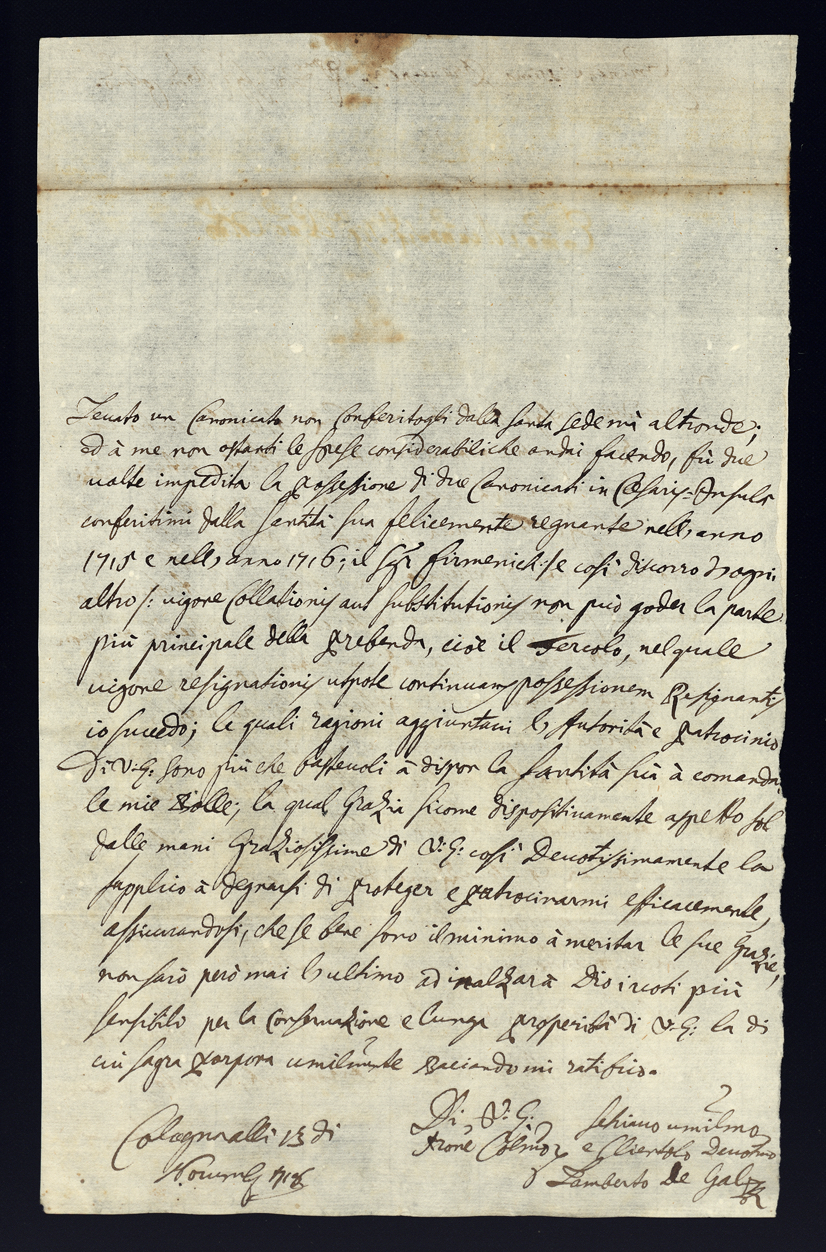 leuato un Canonicato non Conferitogli dalla Santa Sede mà altronde;
ed à me non ostanti le spese considerabili che andai facendo, fù due
uolte impedita la possessione di due Canonicati in Cæsaris-Insula
conferitimi dalla Santità sua felicemente regnante nell'anno
1715 e nell'anno 1716; il Sgr Firmenich /: e così discorro d'ogni
altro :/ uigore Collationis aut substitutionis non può goder la parte
più principale della prebenda, cioè il Ferculo, nel quale
uigore resignationis utpote continuans possessionem Resignantis
io succedo; le quali ragioni aggiuntaui l'Autorità e patrocinio
Di V: E: sono più che basteuoli à dispor la Santità sua à comandar
le mie Bolle; la qual Grazia sicome dispositiuamente aspetto sol
dalle mani Graziosissime di V: E: così Deuotissimamente la
supplico à degnarsi di proteger e patrocinarmi efficacemente,
assicurandosi, che se bene sono il minimo à meritar le sue Grazie,
non sarò però mai l'ultimo ad inalzar à Dio i uoti più
sensibili per la Conseruazione e lunga prosperità di V: E: la di
cui sagra porpora umilmte baciando mi ratifico.
Colognia alli 13 di
Nouembr 1718
Di V: E:
schiauo umilmo
e Clientolo Deuotmo
Lamberto De